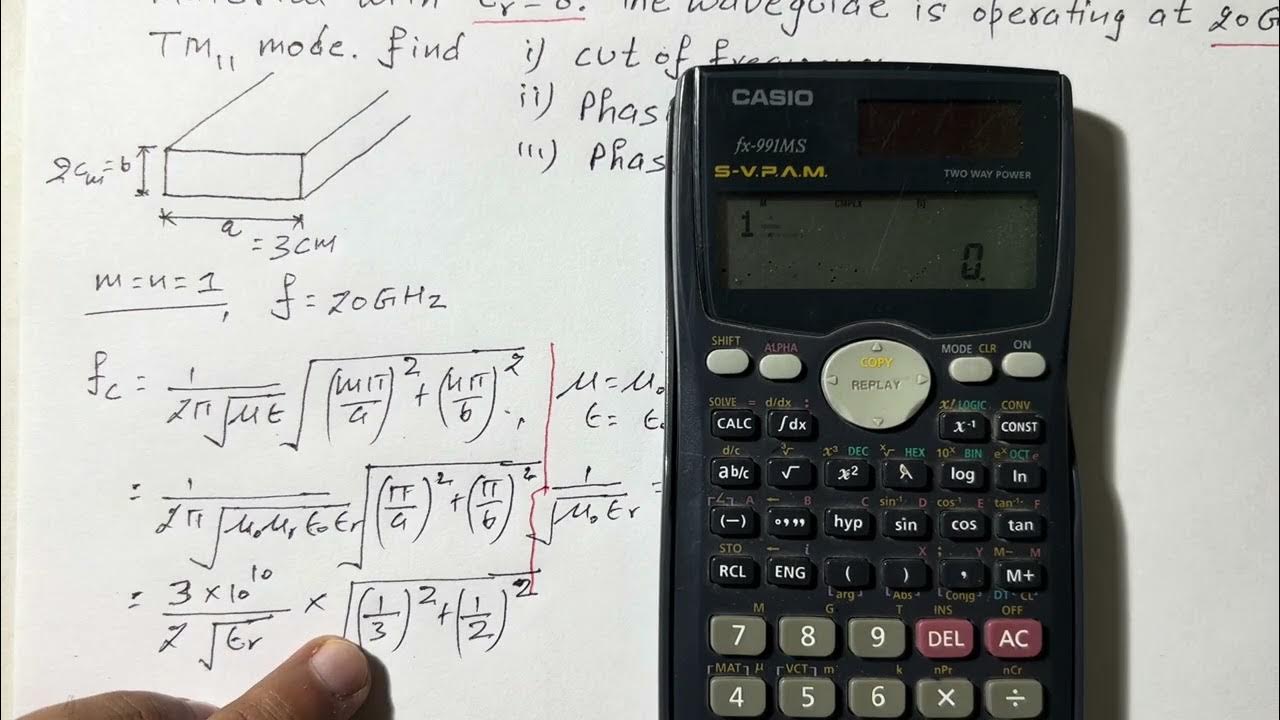 Material with εr=6. The waveguide is operating at 20G
TM₁₁ mode. find i) cut of frequency
ii) Phas
iii) Phas
2cm=b
a
=3cm
m=n=1, f=20GHz
fc = 1/(2π√με) √((mπ/a)²+(nπ/b)²), μ=μ₀
ε=ε₀
= 1/(2π√(μ₀μr ε₀εr)) √((π/a)²+(π/b)²) 1/√(μ₀εr) =
= 3×10¹⁰/(2√εr) × √((1/3)²+(1/2)²)
CASIO
fx-991MS
S-V.P.A.M. TWO WAY POWER
M CMPLX
1÷
0.
SHIFT ALPHA COPY MODE CLR ON
REPLAY
SOLVE = d/dx : x! LOGIC CONV
CALC ∫dx x⁻¹ CONST
d/c ³√ x³ DEC ˣ√ HEX 10ˣ BIN eˣ OCT e
ab/c √ x² ^ log ln
∠ A ← B C sin⁻¹ D cos⁻¹ E tan⁻¹ F
(−) °,,, hyp sin cos tan
STO ← i X ; Y M− M
RCL ENG ( ) , M+
arg Abs Conjg DT CL
M G T INS OFF
7 8 9 DEL AC
MAT μ VCT m k nPr nCr
4 5 6 × ÷